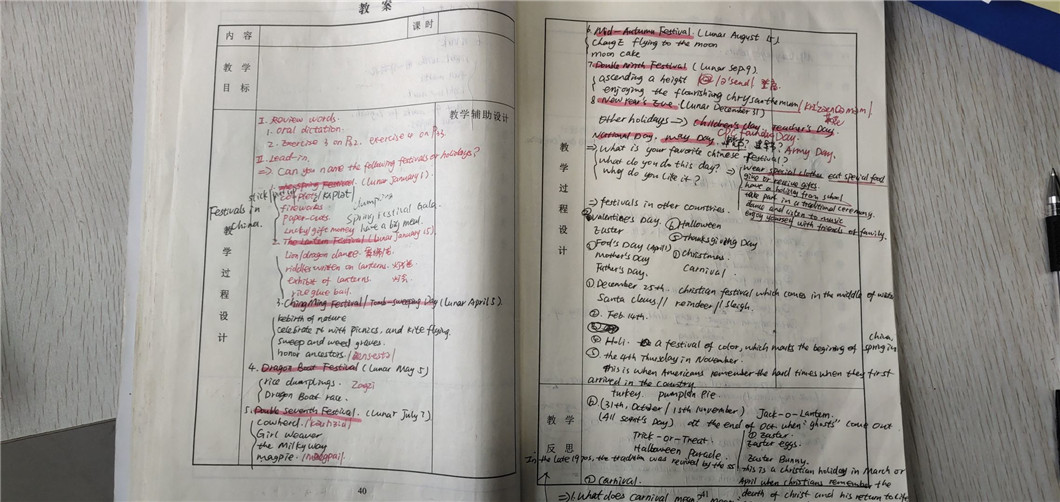 教 案
内 容
课 时
教 学
目 标
教学辅助设计
I. Review words.
1. oral dictation.
2. Exercise 3 on P32. exercise 4 on P33.
II. Lead-in.
=> Can you name the following festivals or holidays?
1. Spring Festival. (Lunar January 1).
couplets /kʌplət/
fireworks
paper-cuts Spring Festival Gala
lucky/gift money have a big meal.
Festivals in
China.
2. The Lantern Festival (Lunar January 15).
Lion/dragon dance.
riddles written on lanterns.
exhibit of lanterns
rice glue ball.
3. ChingMing Festival / Tomb-sweeping Day (Lunar April 5).
rebirth of nature
celebrate it with picnics, and kite flying.
sweep and weed graves.
honor ancestors
4. Dragon Boat Festival (Lunar May 5)
rice dumplings. Zongzi
Dragon Boat race.
5. Double Seventh Festival. (Lunar July 7)
cowherd.
Girl weaver
the Milky way
magpie.
教
学
过
程
设
计
40
6. Mid-Autumn Festival. (Lunar August 15)
Chang E flying to the moon
moon cake
7. Double Ninth Festival (Lunar Sep. 9)
ascending a height /ə'send/
enjoying the flourishing chrysanthemum
8. New Year's Eve (Lunar December 31)
Other holidays => children's day, teacher's Day.
CPC Founding Day.
National Day, may Day, Army Day.
=> What is your favorite chinese festival?
what do you do this day? =>
why do you like it?
wear special clothes eat special food
give or receive gifts
have a holiday from school
take part in a traditional ceremony.
dance and listen to music
enjoy yourself with friends or family.
=> festivals in other countries.
Valentines Day. ⑥ Halloween
Easter ⑤ thanksgiving Day
Fool's Day (April) ① christmas.
Mother's Day
Father's Day. Carnival.
① December 25th. christian festival which comes in the middle of winter
Santa claus // reindeer // sleigh.
②. Feb. 14th.
④ Holi. a festival of color, which marks the beginning of spring in
China,
⑤ the 4th Thursday in November.
this is when Americans remember the hard times when they first
arrived in the country
turkey. pumpkin pie.
⑥ (31th, October / 1st November) Jack-o-Lantern.
(All Saint's Day) at the end of Oct. when "ghosts" come out
Trick-or-Treat.
Halloween Parade.
In the late 1970s, the tradition was revived by the
⑦ Easter.
Easter eggs.
Easter Bunny.
this is a christian holiday in March or
April when christians remember the
death of christ and his return to life
carnival.
=> 1. What does carnival mean
教
学
过
程
设
计
教 学
反 思